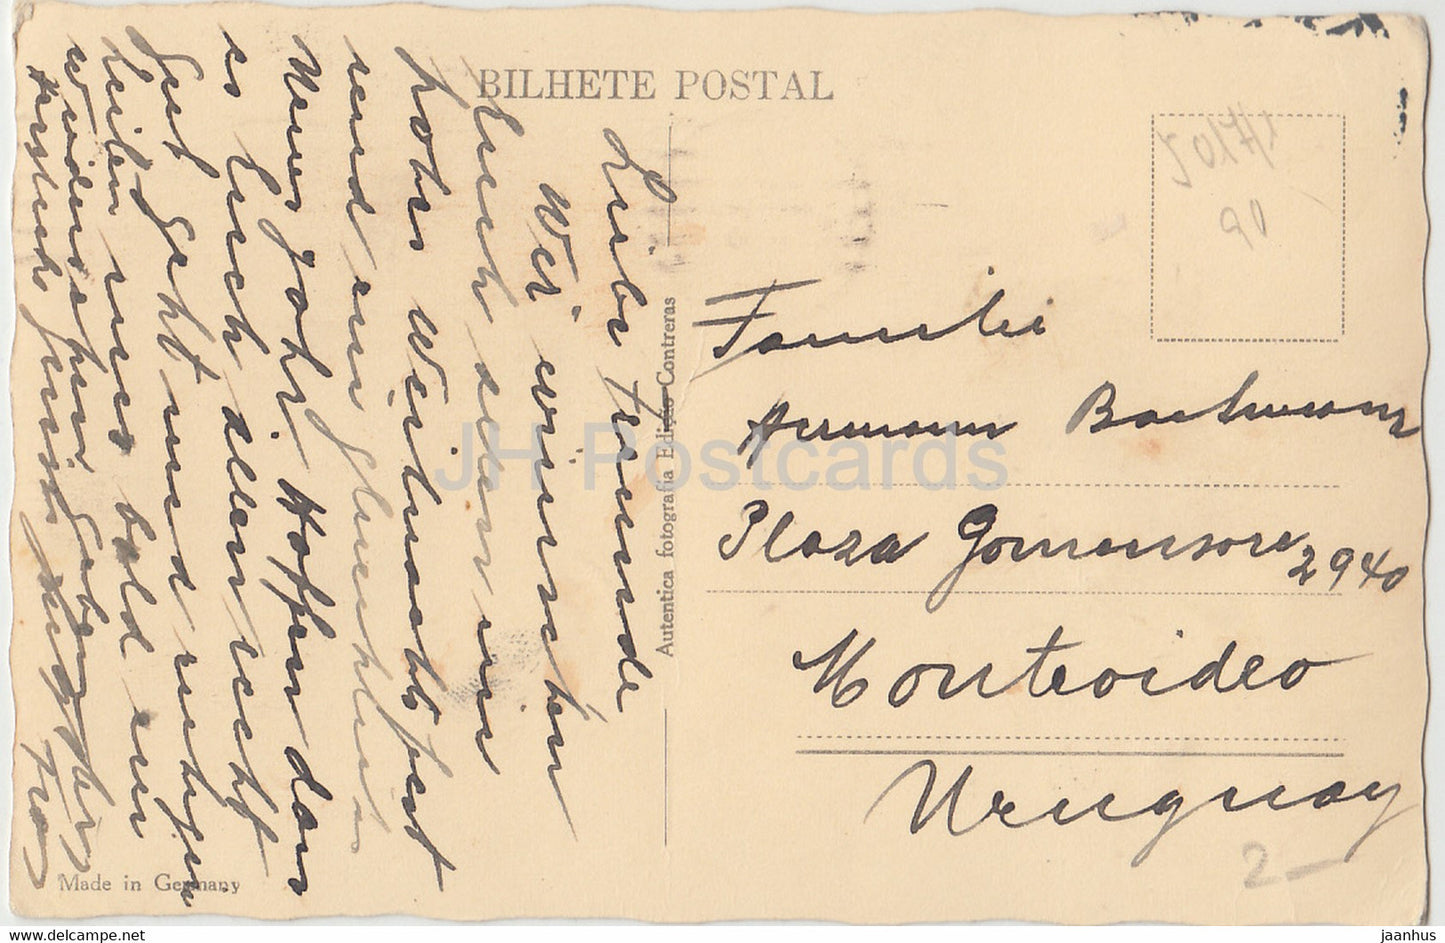 BILHETE POSTAL
Liebe Freunde
Wir wünschen
Euch allen ein
frohes Weihnachtsfest
und ein glückliches
Neues Jahr. Hoffen das
es Euch allen recht
gut geht und mögen
bald ein
wiedersehen geben.
Autentica fotografia Edição Contreras
Made in Germany
Familie
Hermann Bachmann
Plaza Gomensoro 2940
Montevideo
Uruguay
90
2-
JH Postcards
www.delcampe.net
jaanhus